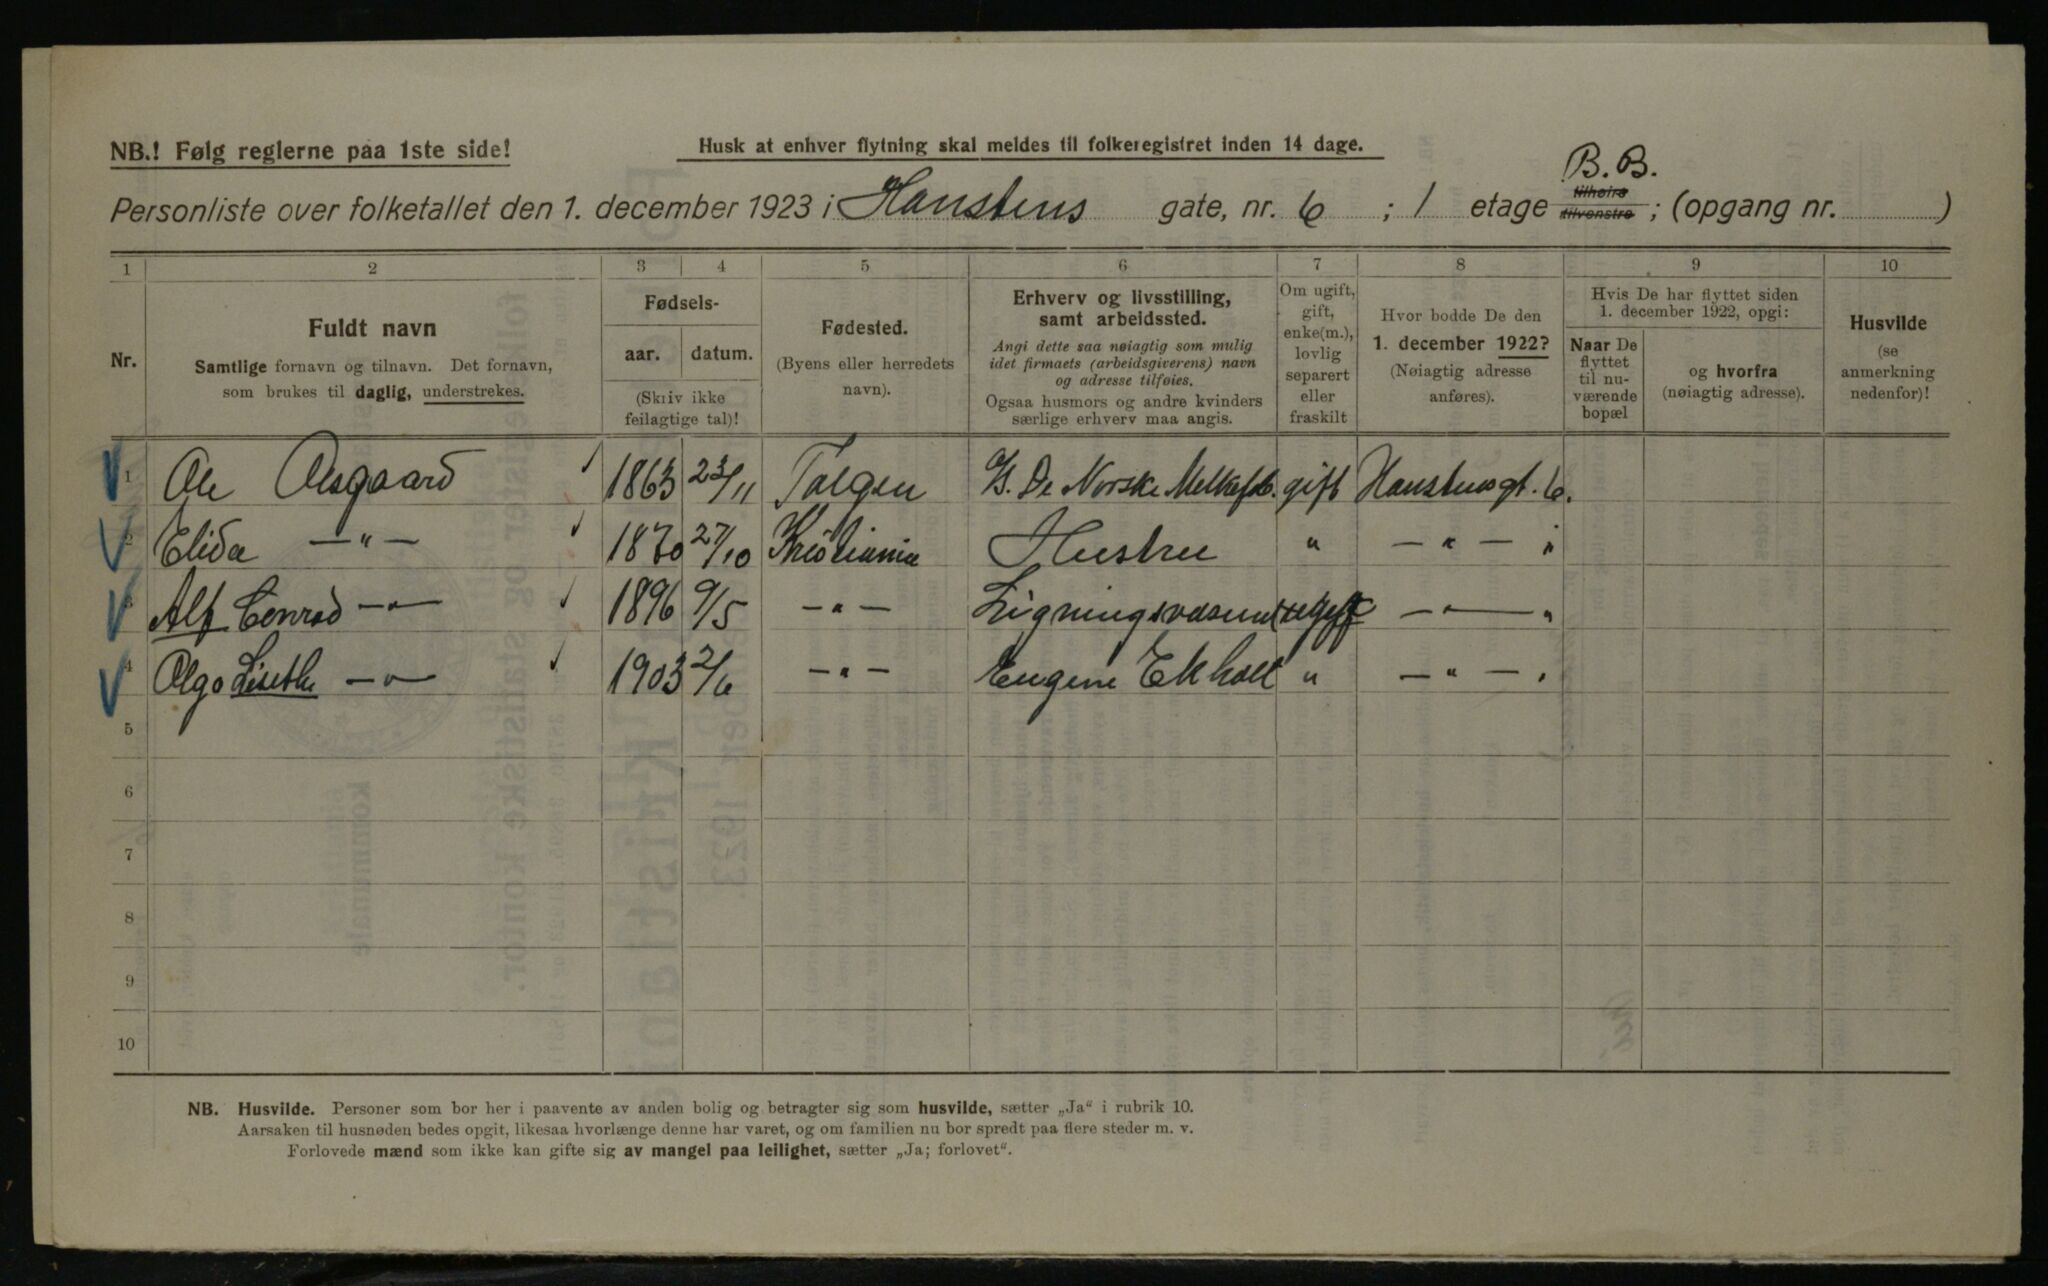 NB.! Følg reglerne paa 1ste side!
Husk at enhver flytning skal meldes til folkeregistret inden 14 dage.
B.B.
Personliste over folketallet den 1. december 1923 i Hanstens gate, nr. 6 ; 1 etage tilhøire tilvenstre ; (opgang nr. )
1 2 3 4 5 6 7 8 9 10
Nr.
Fuldt navn
Samtlige fornavn og tilnavn. Det fornavn,
som brukes til daglig, understrekes.
Fødsels-
aar. datum.
(Skriv ikke
feilagtige tal)!
Fødested.
(Byens eller herredets
navn).
Erhverv og livsstilling,
samt arbeidssted.
Angi dette saa nøiagtig som mulig
idet firmaets (arbeidsgiverens) navn
og adresse tilføies.
Ogsaa husmors og andre kvinders
særlige erhverv maa angis.
Om ugift,
gift,
enke(m.),
lovlig
separert
eller
fraskilt
Hvor bodde De den
1. december 1922?
(Nøiagtig adresse
anføres).
Hvis De har flyttet siden
1. december 1922, opgi:
Naar De
flyttet
til nu-
værende
bopæl
og hvorfra
(nøiagtig adresse).
Husvilde
(se
anmerkning
nedenfor)!
1 Ole Aasgaard 1863 23/11 Tolgen De Norske Melkefab. gift Hanstensgt. 6.
2 Elida —"— 1870 27/10 Kristiania Hustru " —"— "
3 Alf Conrad —"— 1896 9/5 —"— Ligningsvæsenet ugift —"— "
4 Olga Lisethe —"— 1903 2/6 —"— Eugene Ekholt " —"— "
5
6
7
8
9
10
NB. Husvilde. Personer som bor her i paavente av anden bolig og betragter sig som husvilde, sætter „Ja“ i rubrik 10.
Aarsaken til husnøden bedes opgit, likesaa hvorlænge denne har varet, og om familien nu bor spredt paa flere steder m. v.
Forlovede mænd som ikke kan gifte sig av mangel paa leilighet, sætter „Ja; forlovet“.